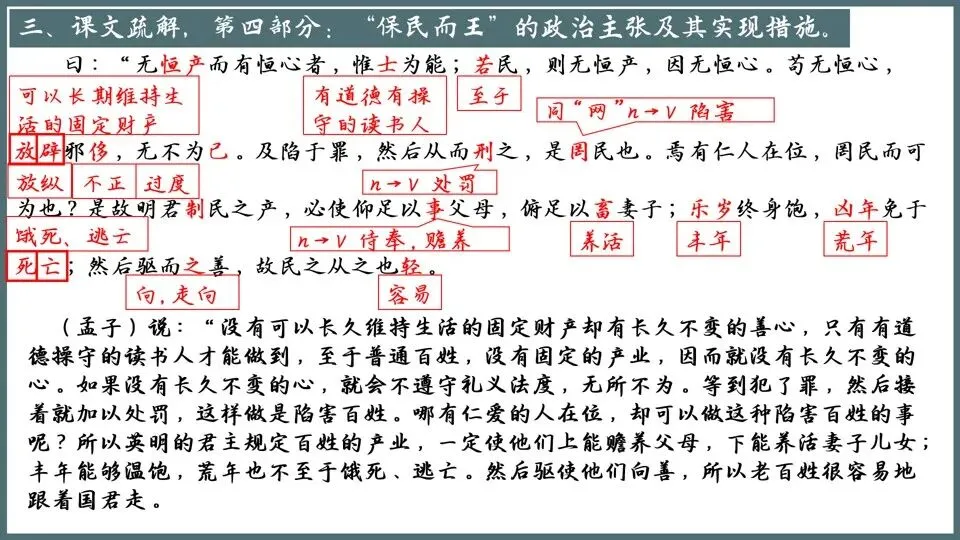 三、课文疏解，第四部分：“保民而王”的政治主张及其实现措施。
曰：“无恒产而有恒心者，惟士为能；若民，则无恒产，因无恒心。苟无恒心，
可以长期维持生
活的固定财产
有道德有操
守的读书人
至于
同“网”n→V 陷害
放辟邪侈，无不为已。及陷于罪，然后从而刑之，是罔民也。焉有仁人在位，罔民而可
放纵
不正
过度
n→V 处罚
为也？是故明君制民之产，必使仰足以事父母，俯足以畜妻子；乐岁终身饱，凶年免于
饿死、逃亡
n→V 侍奉，赡养
养活
丰年
荒年
死亡；然后驱而之善，故民之从之也轻。
向，走向
容易
（孟子）说：“没有可以长久维持生活的固定财产却有长久不变的善心，只有有道
德操守的读书人才能做到，至于普通百姓，没有固定的产业，因而就没有长久不变的
心。如果没有长久不变的心，就会不遵守礼义法度，无所不为。等到犯了罪，然后接
着就加以处罚，这样做是陷害百姓。哪有仁爱的人在位，却可以做这种陷害百姓的事
呢？所以英明的君主规定百姓的产业，一定使他们上能赡养父母，下能养活妻子儿女；
丰年能够温饱，荒年也不至于饿死、逃亡。然后驱使他们向善，所以老百姓很容易地
跟着国君走。